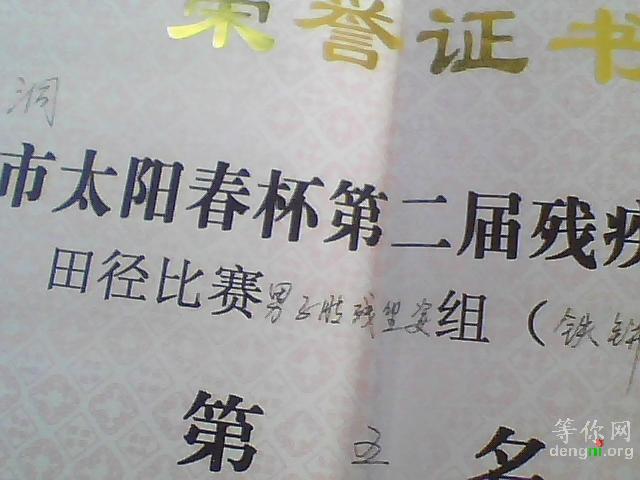 荣誉证书
洞
市太阳春杯第二届残疾
田径比赛男子肢残坐姿组（铁饼
第五名
等你网
dengni.org